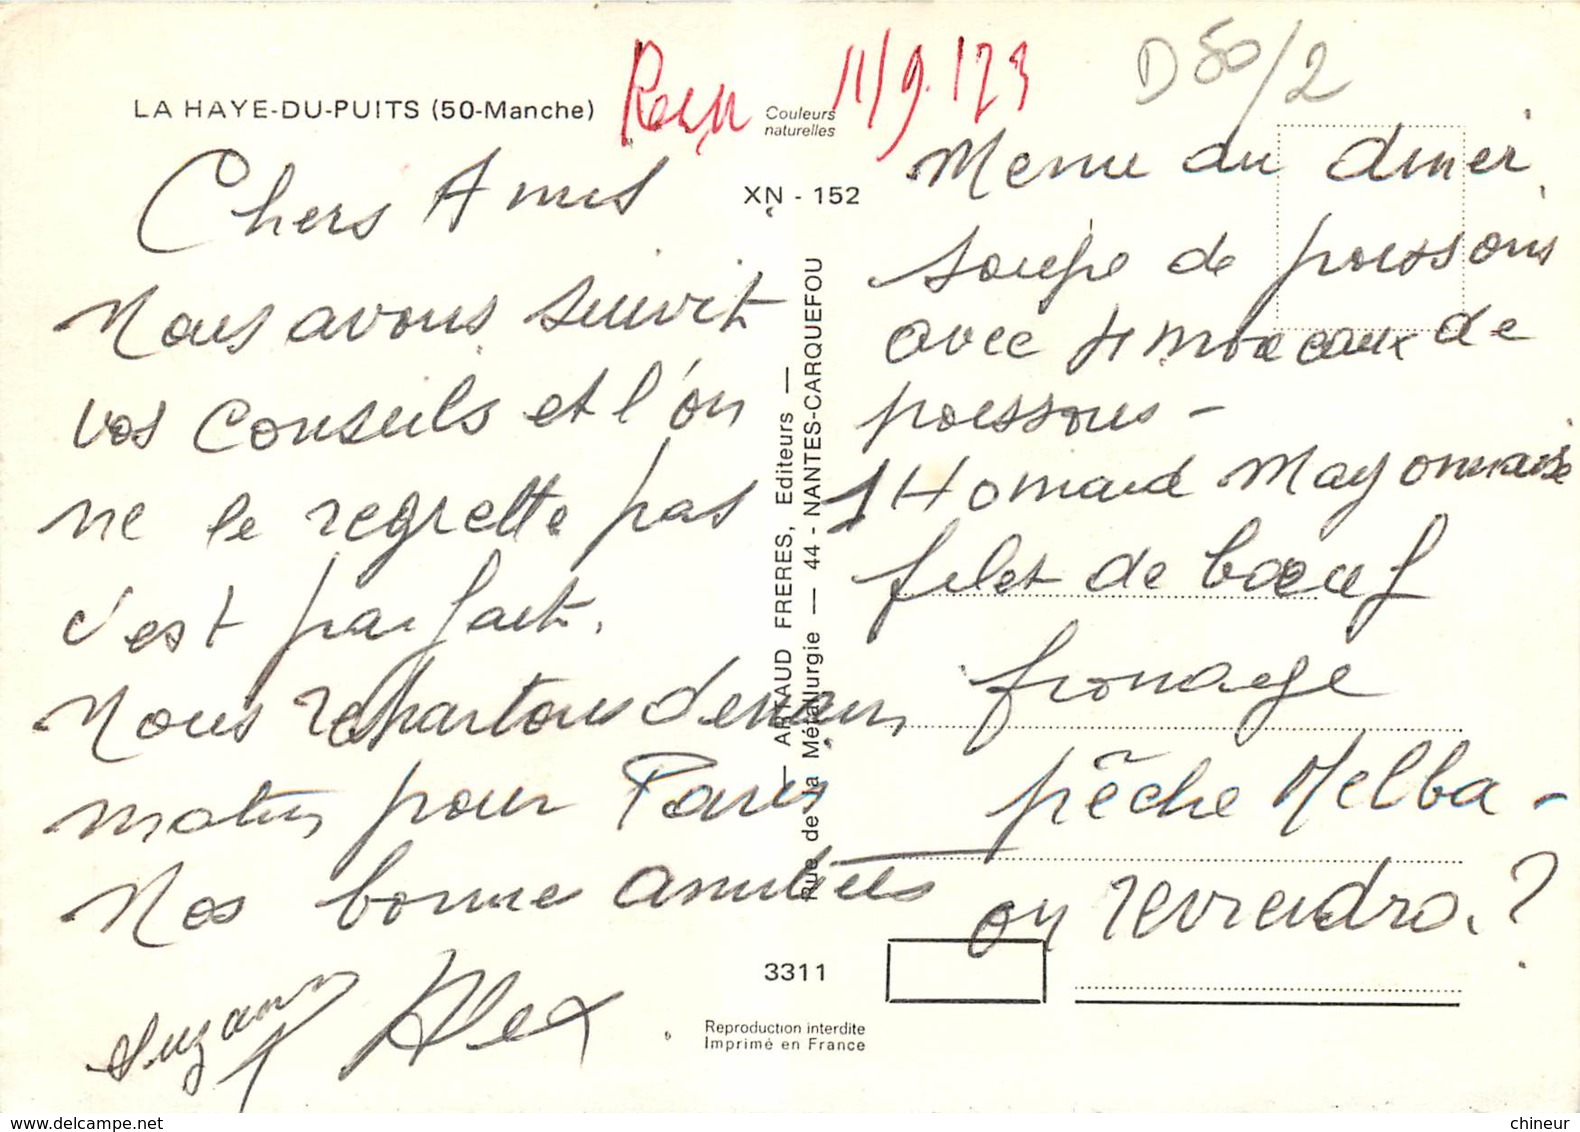 LA HAYE-DU-PUITS (50-Manche)
11/9.173
Couleurs
naturelles
D 50/2
XN - 152
Chers Amis
Nous avons suivit
vos conseils et l'on
ne le regrette pas
c'est parfait.
Nous repartons demain
matin pour Paris
Nos bonne amitiées
Suzann
Alex
ARTAUD FRERES, Editeurs —
Rue de la Métallurgie — 44 - NANTES-CARQUEFOU
Menu du diner.
soupe de poissons
avec 4 morceaux de
poissons -
1 Homard Mayonnaise
filet de bœuf
fromage
pêche Melba -
on reviendra.?
3311
Reproduction interdite
Imprimé en France
chineur